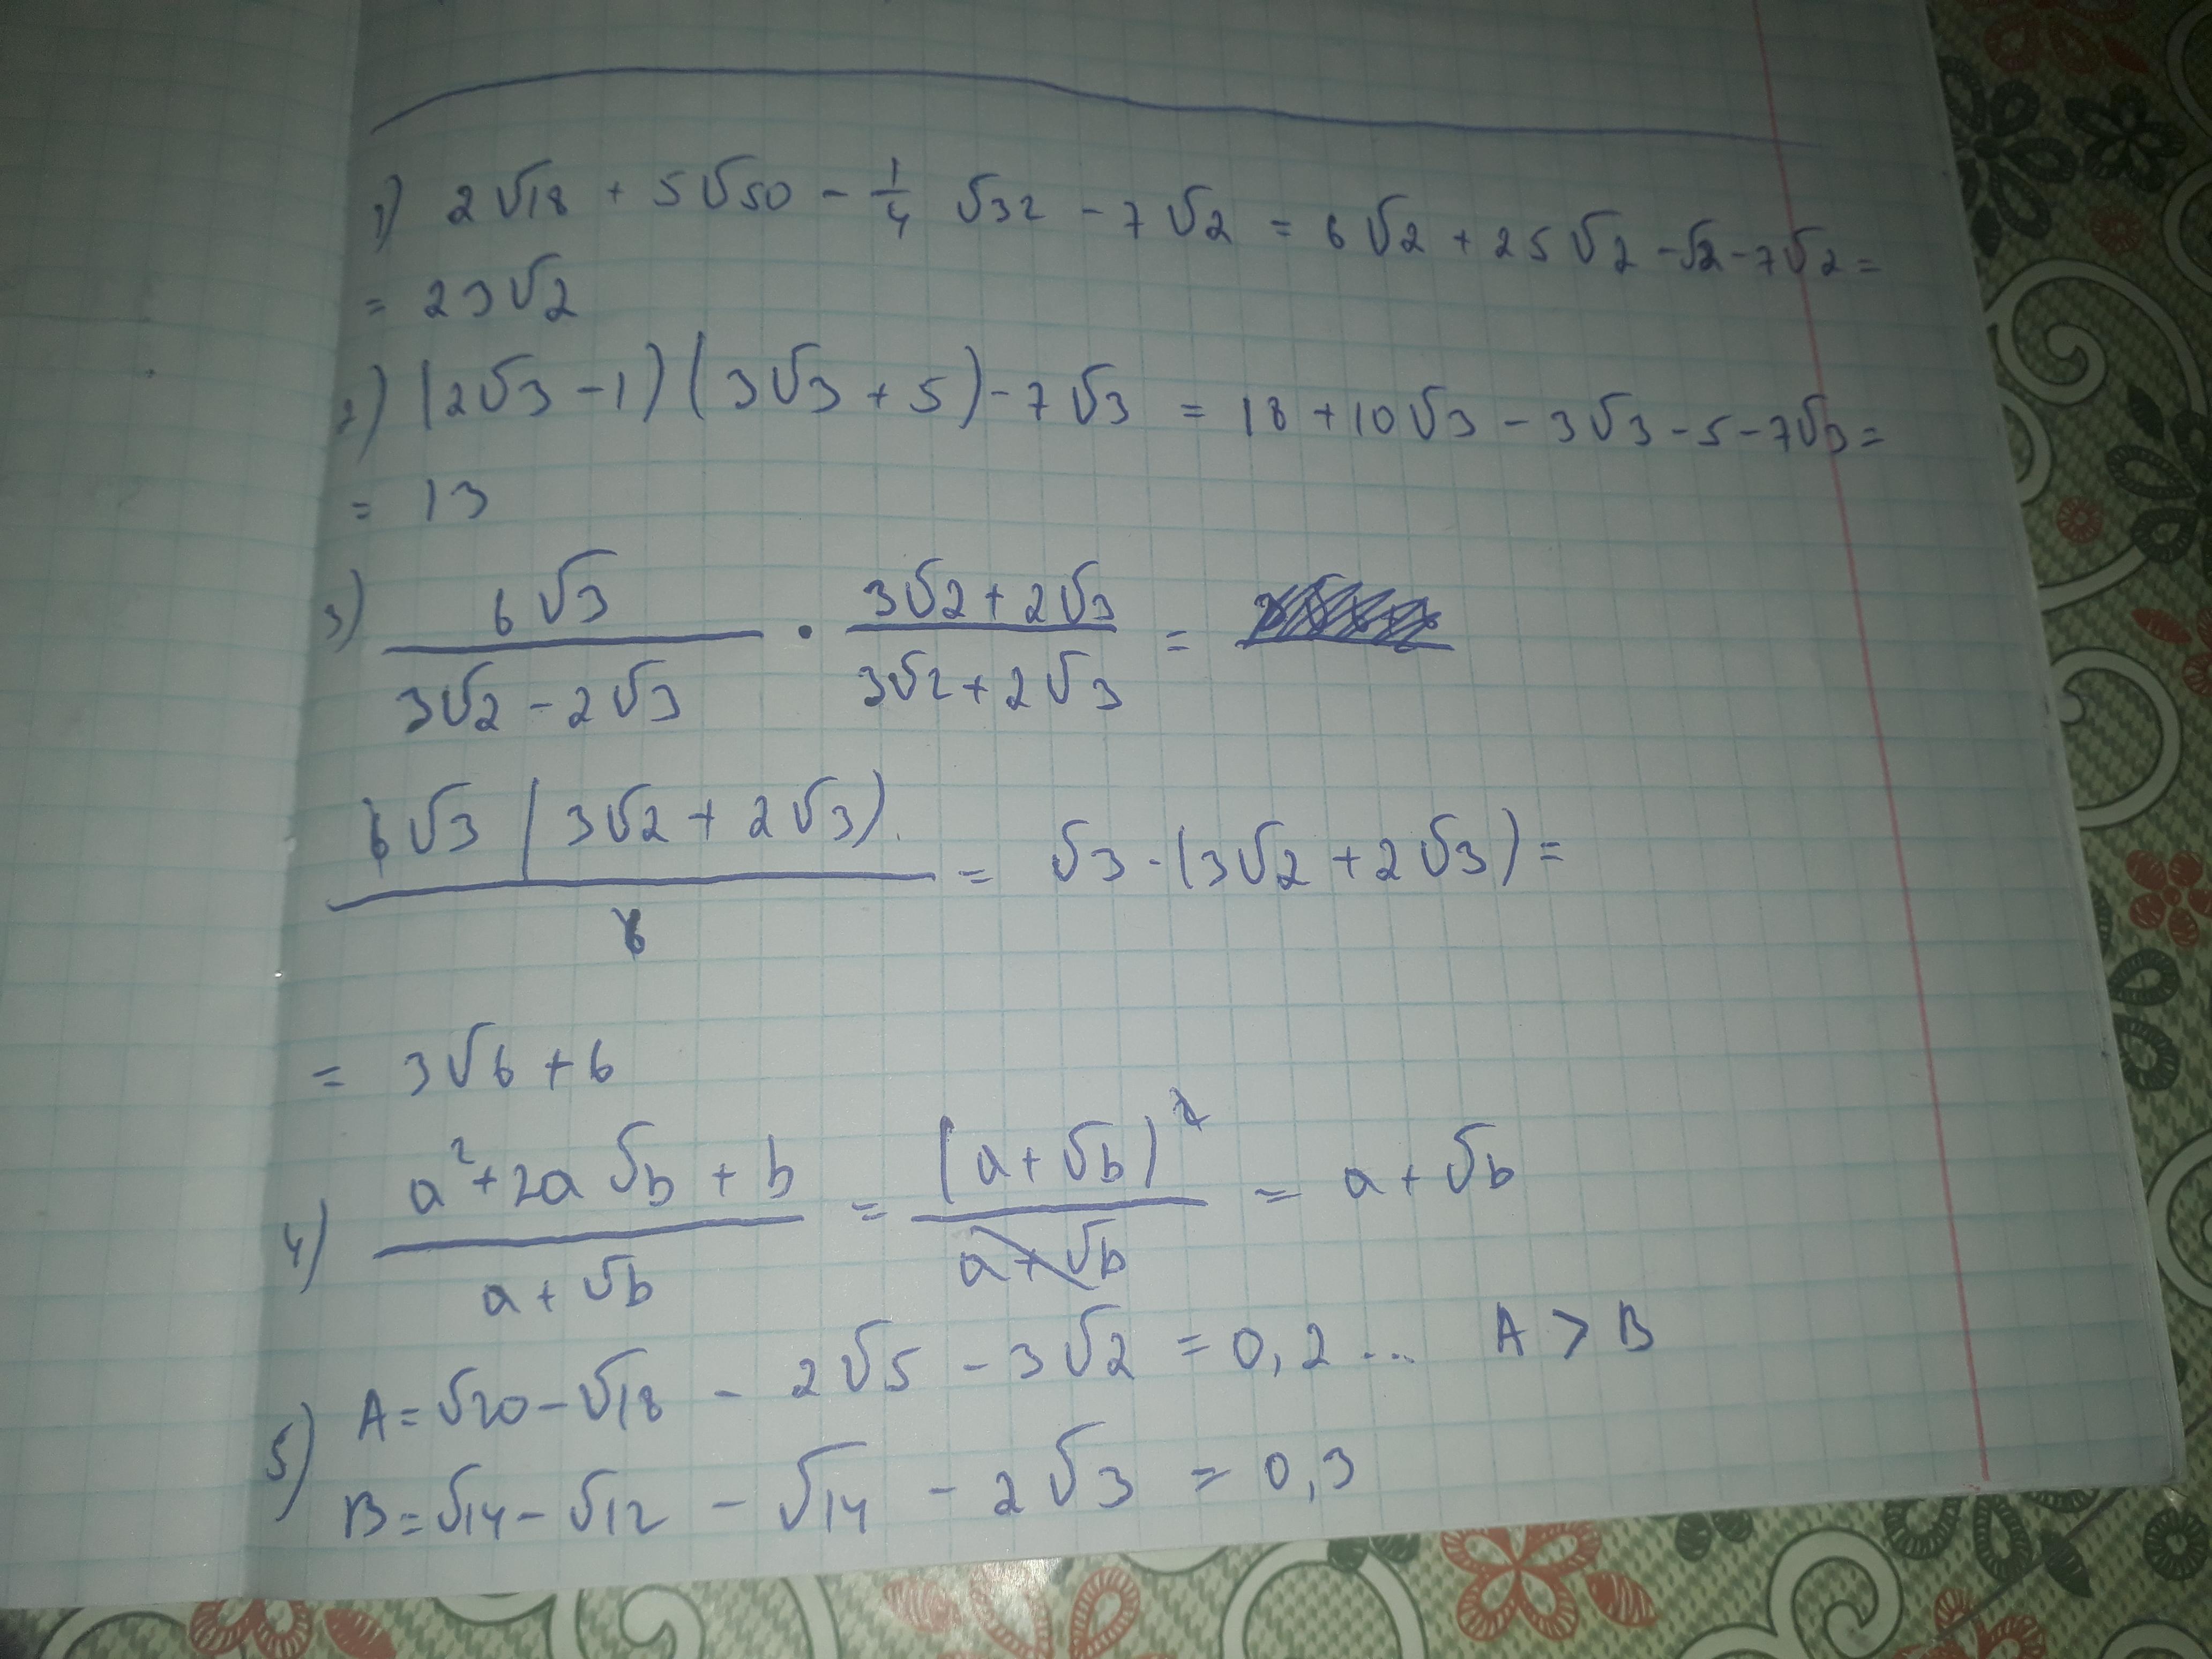 1) 2√18 + 5√50 - 1/4 √32 - 7√2 = 6√2 + 25√2 - √2 - 7√2 =
= 23√2
2) (2√3 - 1) (3√3 + 5) - 7√3 = 18 + 10√3 - 3√3 - 5 - 7√3 =
= 13
3) 6√3 / (3√2 - 2√3) · (3√2 + 2√3) / (3√2 + 2√3) =
6√3 (3√2 + 2√3) / 6 = √3 · (3√2 + 2√3) =
= 3√6 + 6
4) (a² + 2a√b + b) / (a + √b) = (a + √b)² / (a + √b) = a + √b
5) A = √20 - √18 - 2√5 - 3√2 = 0,2... A > B
B = √14 - √12 - √14 - 2√3 = 0,3